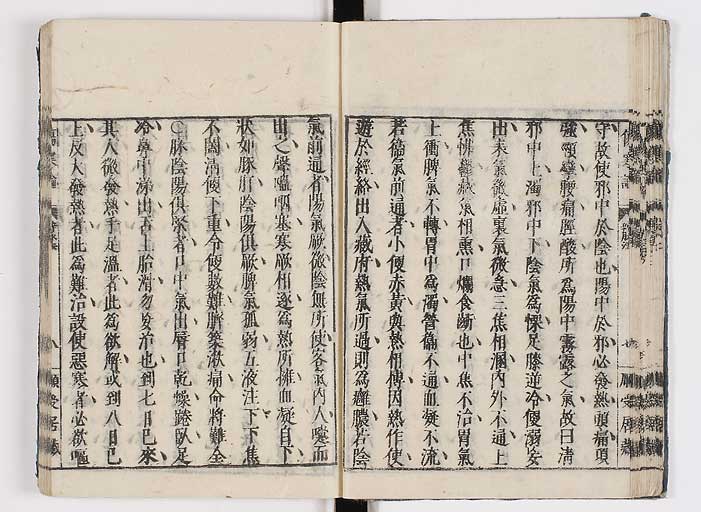 守故使邪中於陰也陽中於邪必發熱頭痛項
強頸攣腰痛脛酸所爲陽中霧露之氣故曰淸
邪中上濁邪中下陰氣爲慄足膝逆冷便溺妄
出表氣微虛裏氣微急三焦相溷內外不通上
焦怫鬱藏氣相熏口爛食齗也中焦不治胃氣
上衝脾氣不轉胃中爲濁營衛不通血凝不流
若衛氣前通者小便赤黃與熱相摶因熱作使
遊於經絡出入藏府熱氣所過則爲癰膿若陰
氣前通者陽氣厥微陰無所使客氣內入嚏而
出之聲嗢咽塞寒厥相逐爲熱所擁血凝自下
狀如豚肝陰陽俱厥脾氣孤弱五液注下下焦
不闔淸便下重令便數難臍築湫痛命將難全
○脉陰陽俱緊者口中氣出唇口乾燥踡臥足
冷鼻中涕出舌上胎滑勿妄治也到七日已來
其人微發熱手足溫者此爲欲解或到八日已
上反大發熱者此爲難治設使惡寒者必欲嘔